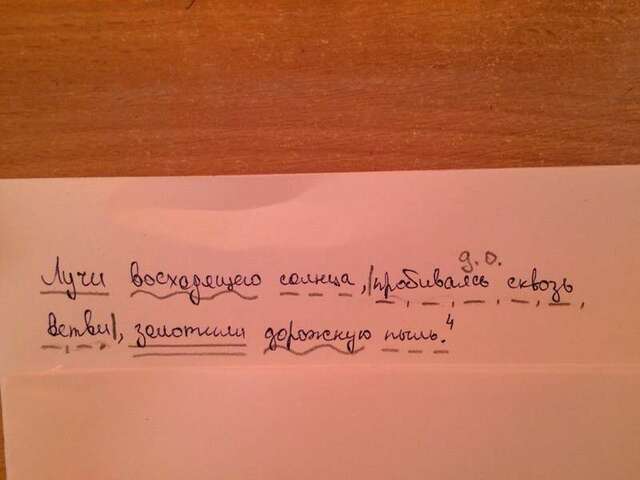 д.о.
Лучи восходящего солнца,|пробиваясь сквозь
ветви|, золотили дорожную пыль.⁴